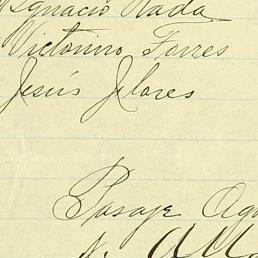 Ignacio Rada
Victorino Torres
Jesús Flores
Pasaje Ago